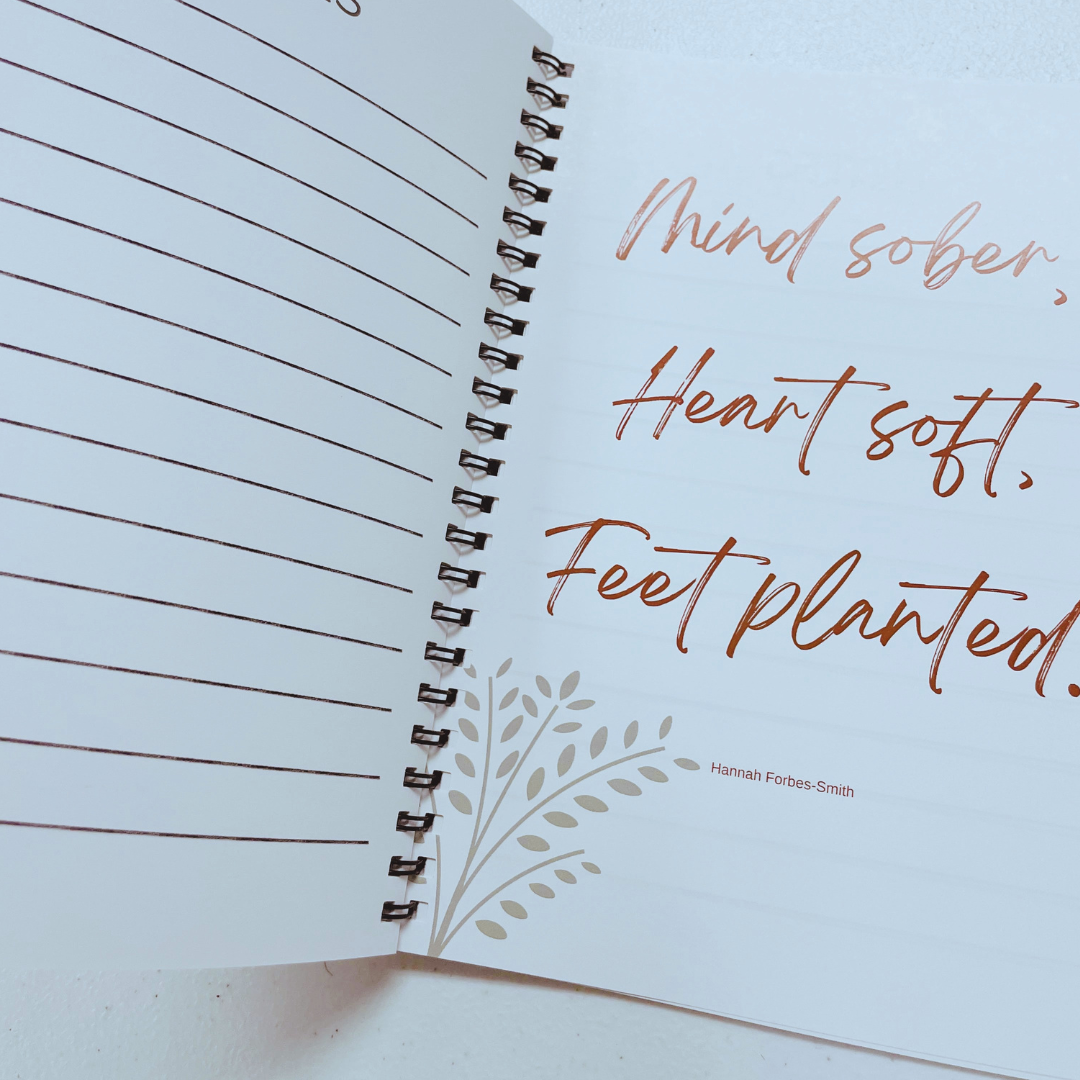 Mind sober,
Heart soft,
Feet planted.
Hannah Forbes-Smith